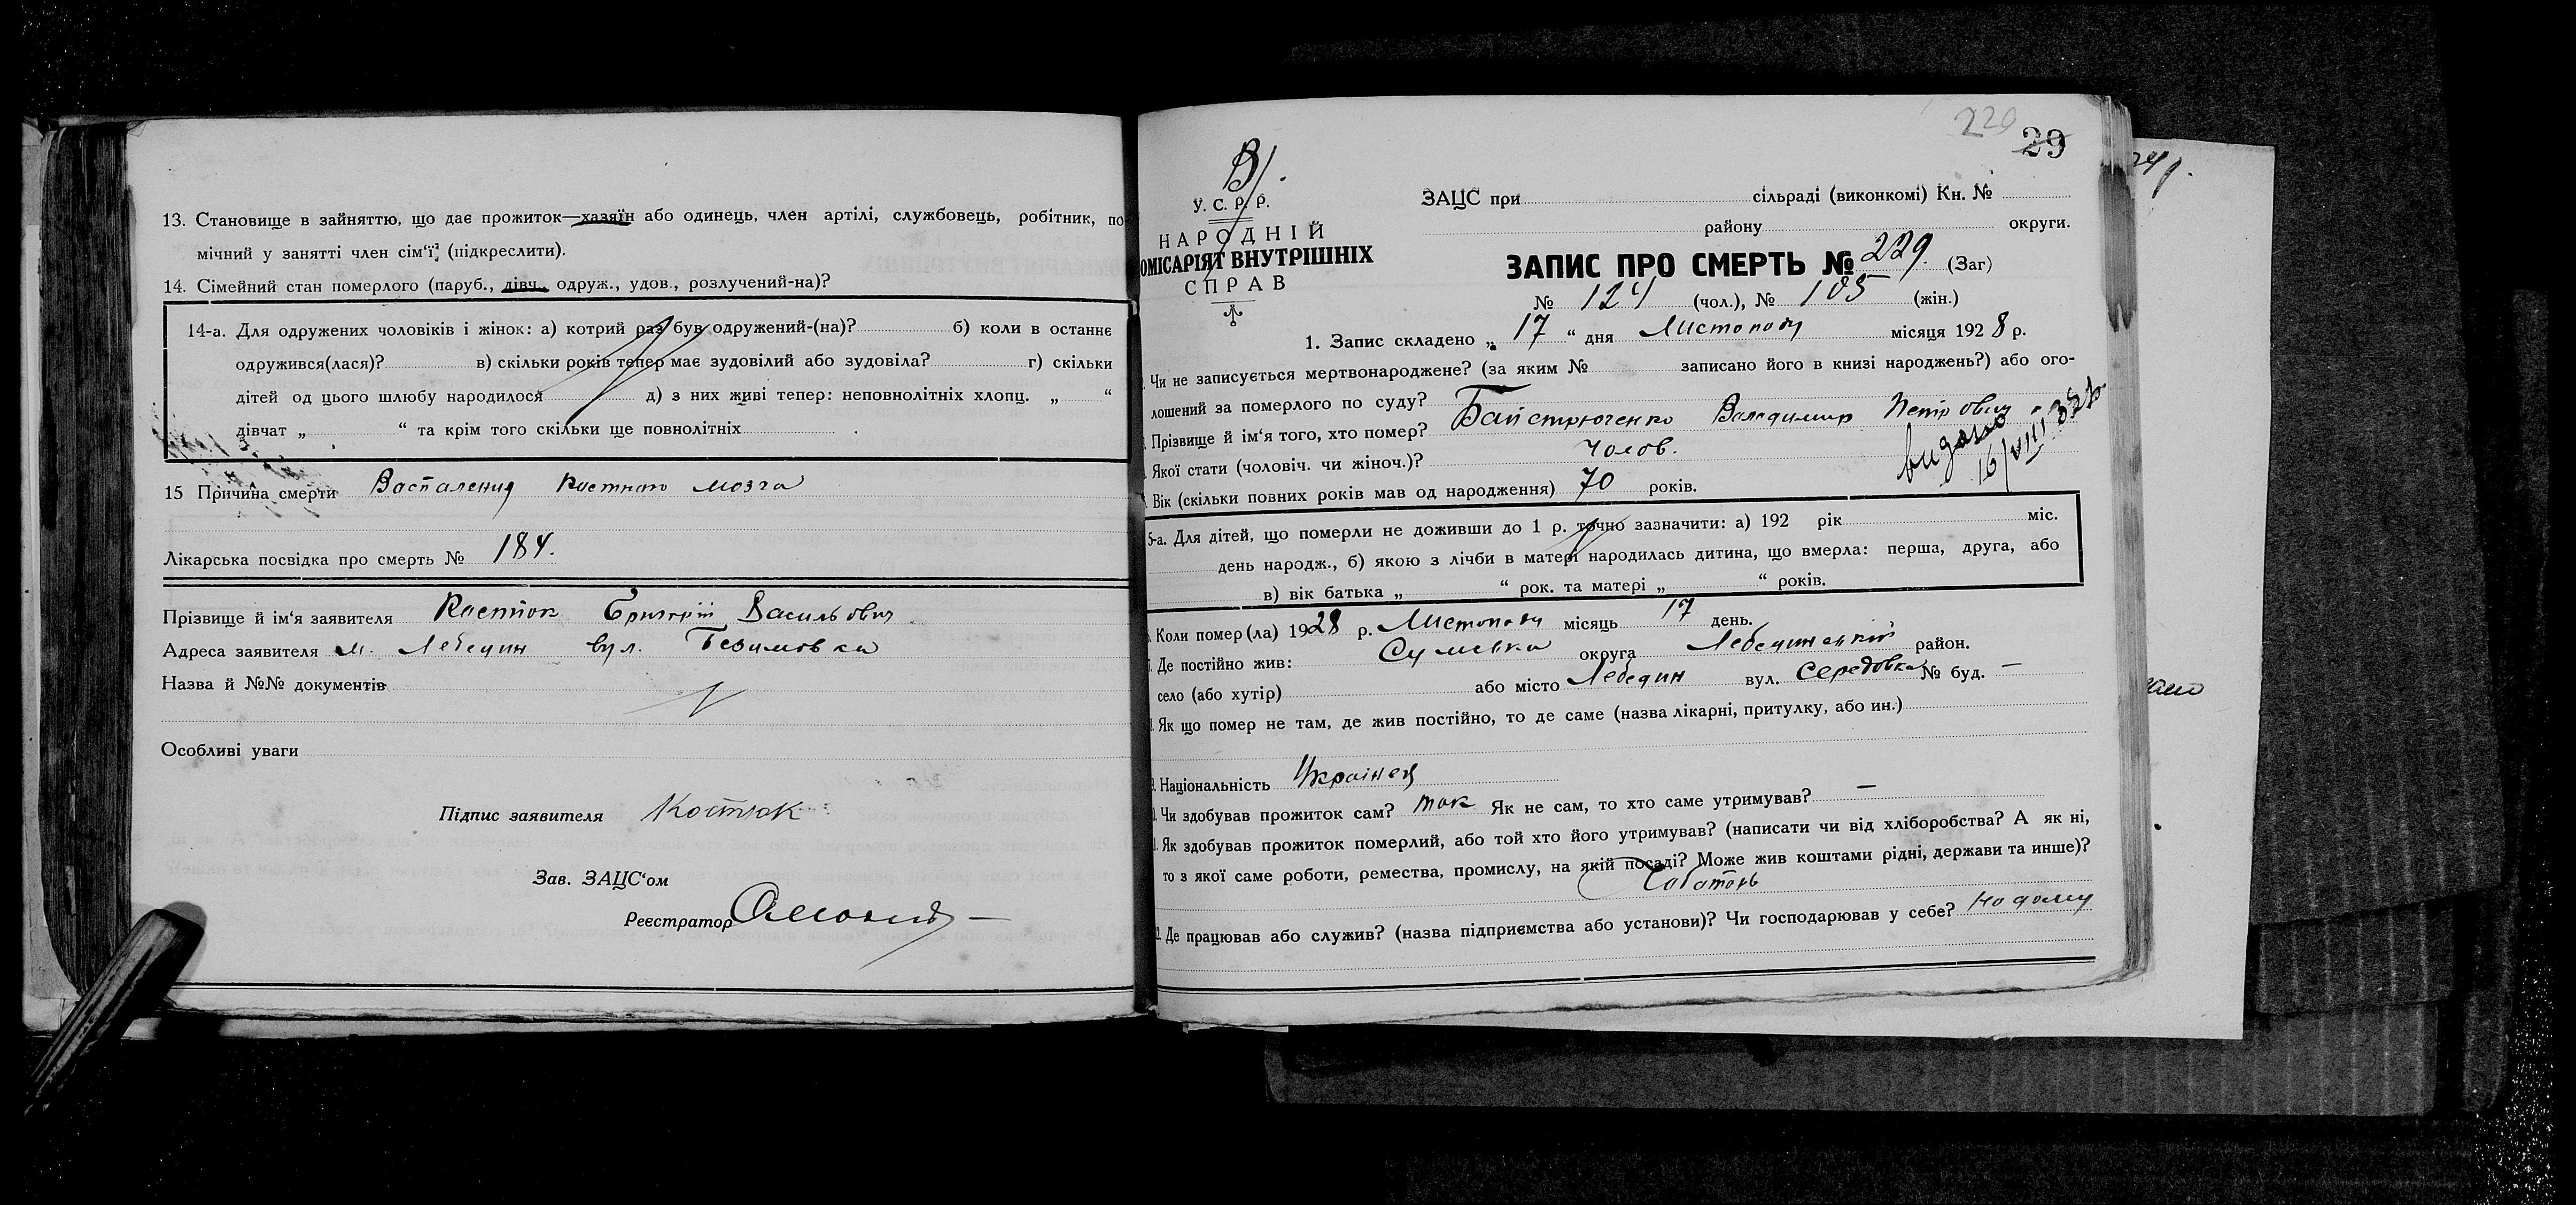 13. Становище в зайняттю, що дає прожиток—хазяїн або одинець, член артілі, службовець, робітник, по-
мічний у занятті член сім'ї, (підкреслити).
14. Сімейний стан померлого (паруб., дівч., одруж., удов., розлучений-на)?
14-а. Для одружених чоловіків і жінок: а) котрий раз був одружений-(на)? б) коли в останнє
одружився(лася)? в) скільки років тепер має зудовілий або зудовіла? г) скільки
дітей од цього шлюбу народилося д) з них живі тепер: неповнолітніх хлопц. „ “
дівчат „ “ та крім того скільки ще повнолітніх
15 Причина смерти Воспаления костного мозга
Лікарська посвідка про смерть № 184.
Прізвище й ім'я заявителя Костюк Григорій Васильович
Адреса заявителя м. Лебедин вул.
Назва й №№ документів
Особливі уваги
Підпис заявителя Костюк
Зав. ЗАЦС'ом
Реєстратор
220
29
В/.
У. С. Р. Р.
НАРОДНІЙ
ОМІСАРІЯТ ВНУТРІШНІХ
СПРАВ
ЗАЦС при сільраді (виконкомі) Кн. №
району округи.
ЗАПИС ПРО СМЕРТЬ № 229. (Заг)
№ 124 (чол.), № 105 (жін.)
1. Запис складено „ 17 “ дня Листопаду місяця 1928 р.
Чи не записується мертвонароджене? (за яким № записано його в книзі народжень?) або ого-
лошений за померлого по суду?
Прізвище й ім'я того, хто помер? Байстрюченко Володимир Петрович.
Якої стати (чоловіч. чи жіноч.)? Чолов.
видано
16/VIII
Вік (скільки повних років мав од народження) 70 років.
5-а. Для дітей, що померли не доживши до 1 р. точно зазначити: а) 192 рік міс.
день народж., б) якою з лічби в матері народилась дитина, що вмерла: перша, друга, або
в) вік батька „ “ рок. та матері „ “ років.
Коли помер(ла) 1928 р. Листопаду місяць 17 день.
Де постійно жив: Сумська округа Лебединський район.
село (або хутір) або місто Лебедин вул. Середовка № буд. —
Як що помер не там, де жив постійно, то де саме (назва лікарні, притулку, або ин.)
Національність Українец
Чи здобував прожиток сам? так Як не сам, то хто саме утримував? —
Як здобував прожиток померлий, або той хто його утримував? (написати чи від хліборобства? А як ні,
то з якої саме роботи, ремества, промислу, на якій посаді? Може жив коштами рідні, держави та инше)?
Де працював або служив? (назва підприємства або установи)? Чи господарював у себе? на дому